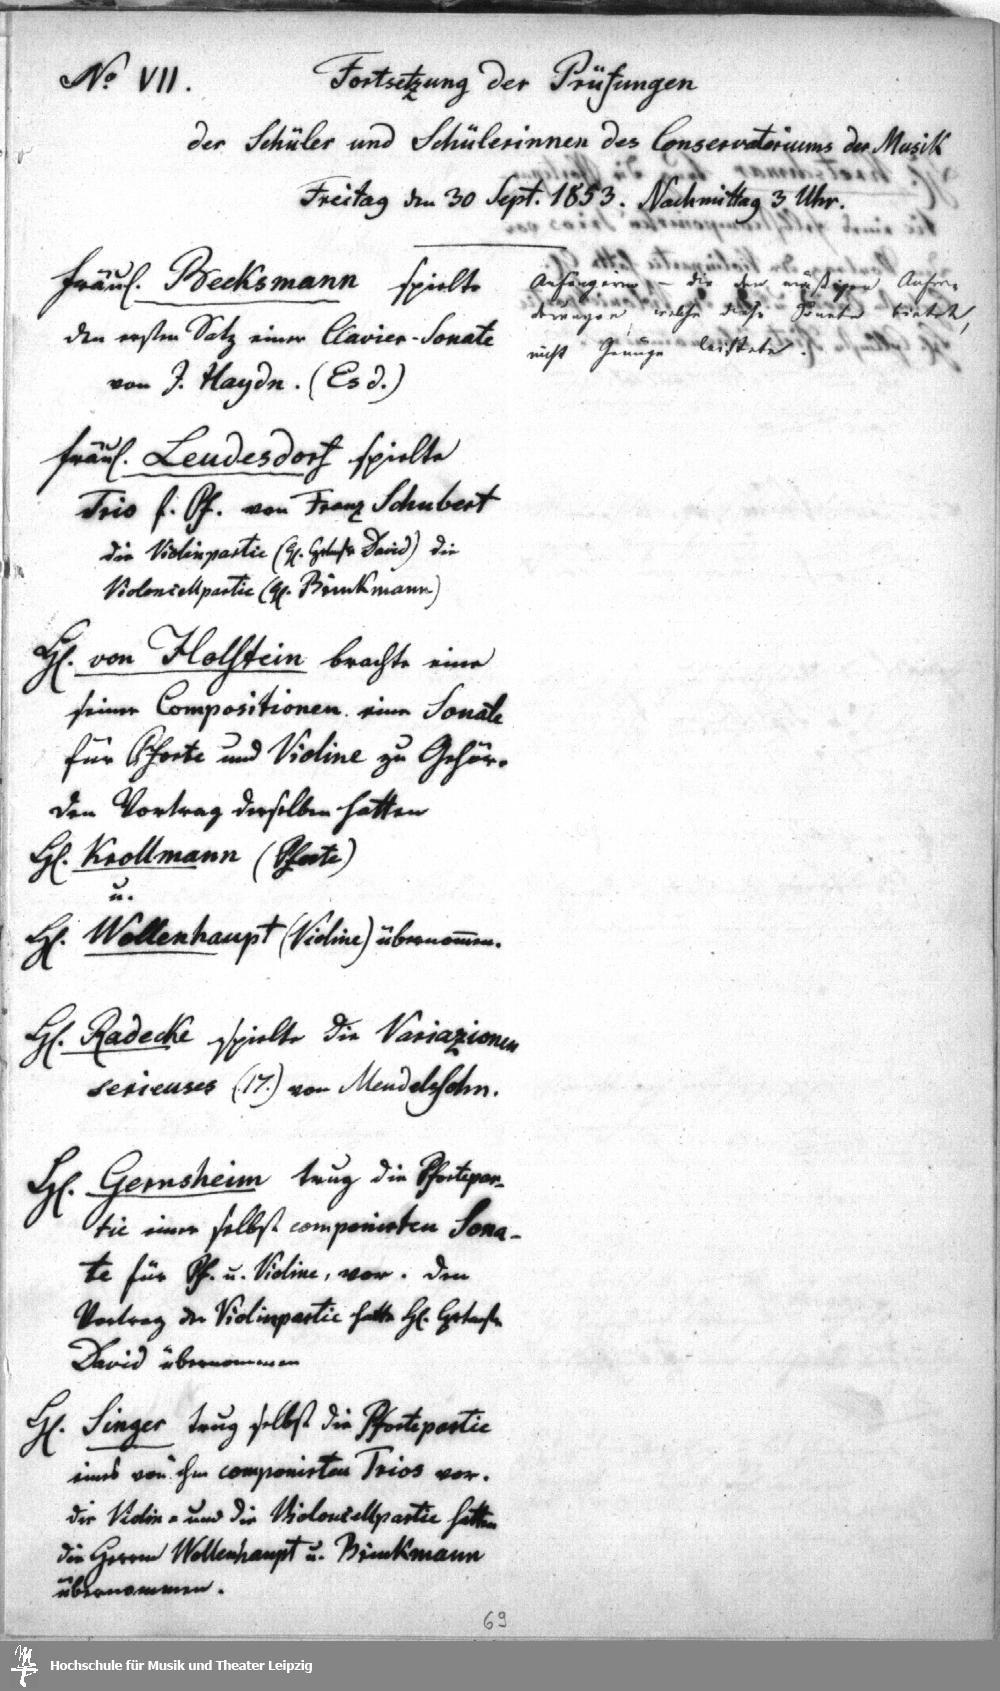 No VII. Fortsetzung der Prüfungen
der Schüler und Schülerinnen des Conservatoriums der Musik
Freitag den 30 Sept. 1853. Nachmittag 3 Uhr.
Fräul. Becksmann spielte
den ersten Satz einer Clavier-Sonate
von J. Haydn. (Es d.)
Anfängerin – die den mäßigen Anfor-
derungen, welche diese Sonate bietet,
nicht Genüge leistete.
Fräul. Leudesdorf spielte
Trio f. Pf. von Franz Schubert
die Violinpartie (H. David) die
Violoncellpartie (H. Brinkmann)
H. von Holstein brachte eine
seiner Compositionen eine Sonate
für Pforte und Violine zu Gehör.
Den Vortrag derselben hatten
H. Krollmann (Pforte)
u.
H. Wollenhaupt (Violine) übernommen.
H. Radecke spielte die Variazionen
serieuses (17.) von Mendelssohn.
H. Gernsheim trug die Pfortepar-
tie einer selbst componirten Sona-
te für Pf. u. Violine, vor. Den
Vortrag der Violinpartie hatte H.
David übernommen
H. Singer trug selbst die Pfortepartie
eines von ihm componirten Trios vor.
die Violin- und die Violoncellpartie hatten
die Herren Wollenhaupt u. Brinkmann
übernommen.
69
Hochschule für Musik und Theater Leipzig